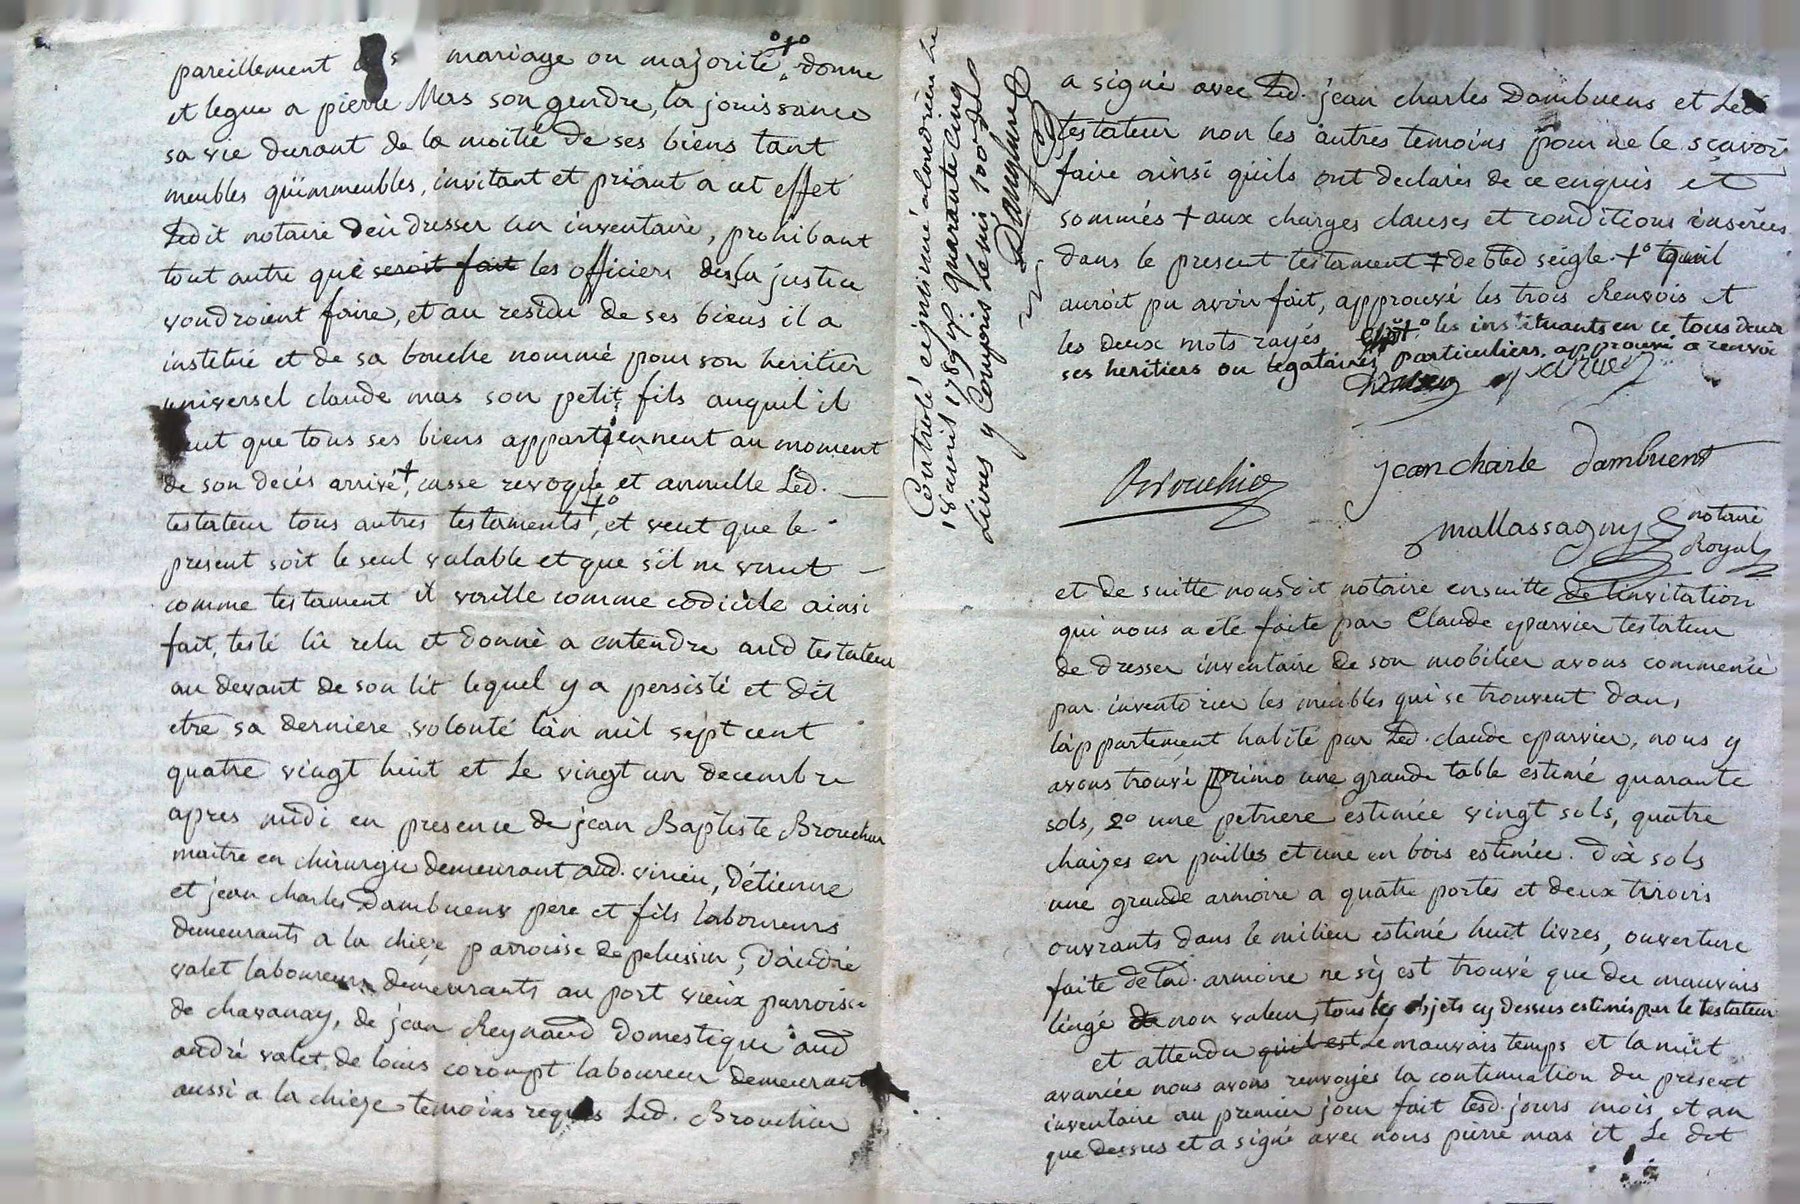 pareillement mariage ou majorité, donne
et legue a pierre Mas son gendre, la jouissance
sa vie durant de la moitié de ses biens tant
meubles qüimmeubles, invitant et priant a cet effet
Ledit notaire d'en dresser un inventaire, prohibant
tout autre que seroit fait les officiers de la justice
voudroient faire, et au residu de ses biens il a
institué et de sa bouche nommé pour son heritier
universel claude mas son petit fils auquil il
veut que tous ses biens appartiennent au moment
de son decés arrivé +, casse revoque et annulle Led.
testateur tous autres testaments +o, et veut que le
present soit le seul valable et que s'il ne vaut
comme testament il vaille comme codicile ainsi
fait, testé lû relu et donné a entendre aud testateur
au devant de son lit lequel y a persisté et dit
etre sa derniere volonté l'an mil sept cent
quatre vingt huit et Le vingt un decembre
apres midi en presence de jean Baptiste Brouchier
maitre en chirurgie demeurant aud. virieu, d'étienne
et jean charles Dambuens pere et fils laboureurs
demeurants a la chieze parroisse de pelussin, d'andré
valet laboureur demeurants au port vieux parroisse
de chavanay, de jean Reynaud domestique aud
andré valet, de louis corompt laboureur demeurant
aussi a la chieze temoins requis Led. Brouchier
Controlé
18 avril 1789 quarante cinq
Livres y Compris le
a signé avec Led. jean charles Dambuens et Led.
testateur non les autres temoins pour ne le sçavoir
faire ainsi quils ont declarés de ce enquis et
sommés + aux charges clauses et conditions inserées
dans le present testament ‡ de bled seigle +o quil
auroit pu avoir fait, approuvé les trois Renvois et
les deux mots rayés les instituants en ce tous deux
ses heritiers ou legataires particuliers, approuvé a renvoi
Brouchier
jean charle dambuent
mallassagny notaire
Royal
et de suitte nousdit notaire ensuitte de l'invitation
qui nous a eté faite par Claude eparvier testateur
de dresser inventaire de son mobilier avons commencé
par inventorier les meubles qui se trouvent dans
l'appartement habité par Led. claude eparvier, nous y
avons trouvé Primo une grande table estimé quarante
sols, 2o une petriere estimée vingt sols, quatre
chaizes en pailles et une en bois estimée. dix sols
une grande armoire a quatre portes et deux tiroirs
ouvrants dans le milieu estimé huit livres, ouverture
faite de lad. armoire ne s'y est trouvé que du mauvais
linge de non valeur, tous les objets cy dessus estimés par le testateur
et attendu quil est le mauvais temps et la nuit
avancée nous avons renvoyés la continuation du present
inventaire au premier jour fait lesd. jours mois et an
que dessus et a signé avec nous pierre mas et Le dit